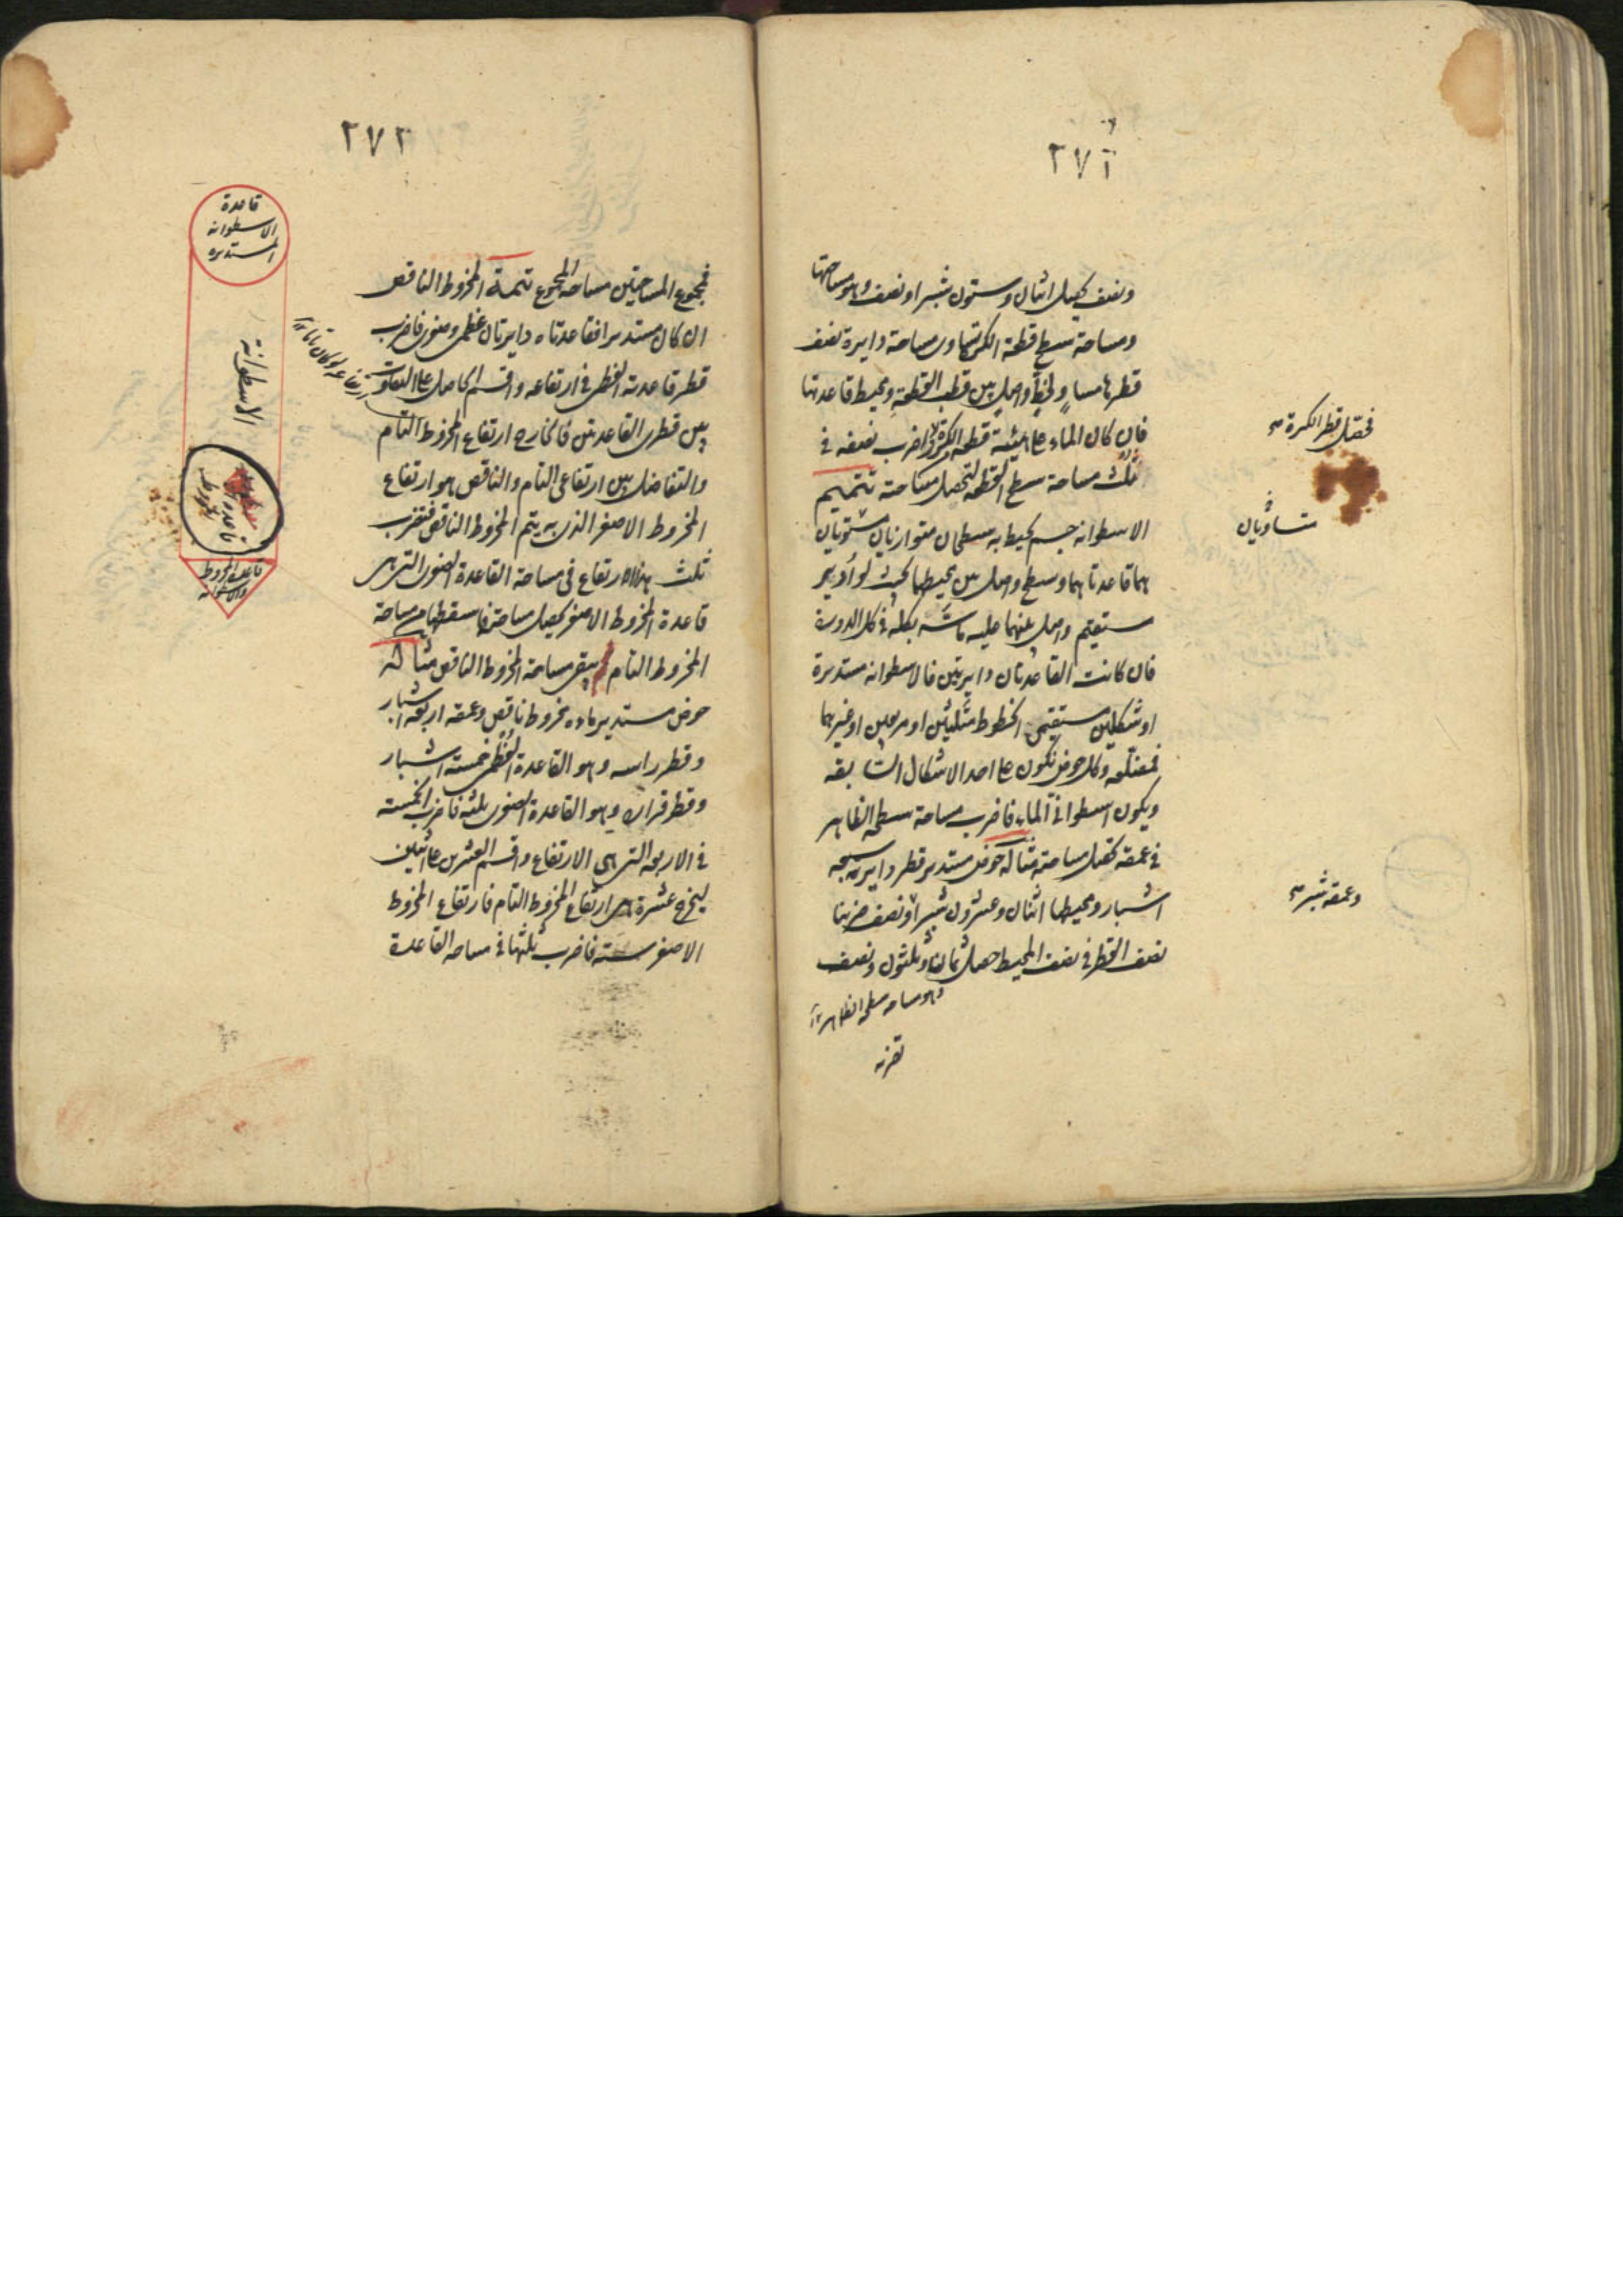 ٢٧١
ونصف يحصل اثنان وستون شبرا ونصف وهو مساحتها
ومساحة سطح قطعة الكرة تساوى مساحة دايرة نصف
قطرها مساو لخط واصل بين قطب القطعة ومحيط قاعدتها
فان كان الماء على هيئة قطعة الكرة فاضرب نصفه فى
ثلث مساحة سطح القطعة لتحصل مساحته تتميم
الاسطوانه جسم يحيط به سطحان متوازيان مستويان
هما قاعدتاهما وسطح واصل بين محيطيهما بحيث لو أدير
مستقيم واصل بينهما عليه ماسّه بكله فى كل الدورة
فان كانت القاعدتان دايرتين فالاسطوانه مستديرة
او شكلين مستقيمى الخطوط مثلثين او مربعين او غيرهما
فمضلعه وكل حوض يكون على احد الاشكال السابقه
ويكون اسطوانى الماء فاضرب مساحة سطحه الظاهر
فى عمقه تحصل مساحته مثاله حوض مستدير قطر دايرته سبعه
اشبار ومحيطها اثنان وعشرون شبرا ونصف ضربنا
نصف القطر فى نصف المحيط حصل ثمانيه وثلثون ونصف
وهو مساحه سطحه الظاهر
فحصل قطر الكرة صح
متساويان
وعمقه شبر صح
٢٧٢
فمجموع المساحتين مساحه المجموع تتمة المخروط الناقص
ان كان مستديرا فقاعدتاه دايرتان عظمى وصغرى فاضرب
قطر قاعدته العظمى فى ارتفاعه واقسم الحاصل على التفاوت
بين قطرى القاعدتين فالخارج ارتفاع المخروط التام
والتفاضل بين ارتفاعى التام والناقص هو ارتفاع
المخروط الاصغر الذى به يتم المخروط الناقص فتضرب
ثلث هذا الارتفاع فى مساحة القاعدة الصغرى التى هى
قاعدة المخروط الاصغر يحصل مساحته فاسقطها من مساحة
المخروط التام يبقى مساحة المخروط الناقص مثاله
حوض مستدير ماؤه مخروط ناقص وعمقه اربعة اشبار
وقطر راسه وهو القاعدة العظمى خمسة اشبار
وقطر قراره وهو القاعدة الصغرى ثلثه فاضرب الخمسة
فى الاربعه التى هى الارتفاع واقسم العشرين على اثنين
ليخرج عشرة هى ارتفاع المخروط التام فارتفاع المخروط
الاصغر سته فاضرب ثلثها فى مساحه القاعدة
ارتفاعه لو كان تاما
قاعدة
الاسطوانه
المستديره
الاسطوانة
قاعدة
المخروط
قاعدة المخروط
والاسطوانه